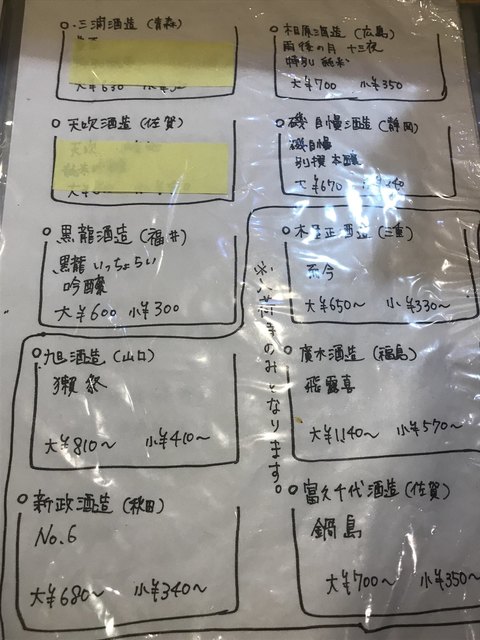 ○三浦酒造（青森）
大¥630
○天吹酒造（佐賀）
天吹
○黒龍酒造（福井）
黒龍 いっちょらい
吟醸
大¥600 小¥300
○旭酒造（山口）
獺祭
大¥810～ 小¥410～
○新政酒造（秋田）
No.6
大¥680～ 小¥340～
○相原酒造（広島）
雨後の月 十三夜
特別 純米
大¥700 小¥350
○磯自慢酒造（静岡）
磯自慢
別撰 本醸
大¥670
○木屋正酒造（三重）
而今
大¥650～ 小¥330～
○廣木酒造（福島）
飛露喜
大¥1,140～ 小¥570～
○富久千代酒造（佐賀）
鍋島
大¥700～ 小¥350～
のみとなります。